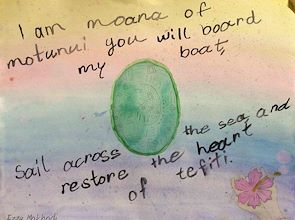 I am moana of
motunui you will board
my boat,
Sail across the sea, and
restore the heart
of tefiti.